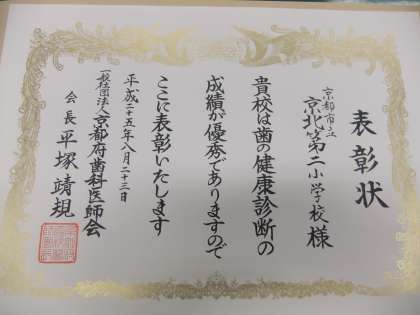 表彰状
京都市立
京北第二小学校様
貴校は歯の健康診断の
成績が優秀でありますので
ここに表彰いたします
平成二十五年八月二十三日
一般社団法人京都府歯科医師会
会長 平塚靖規